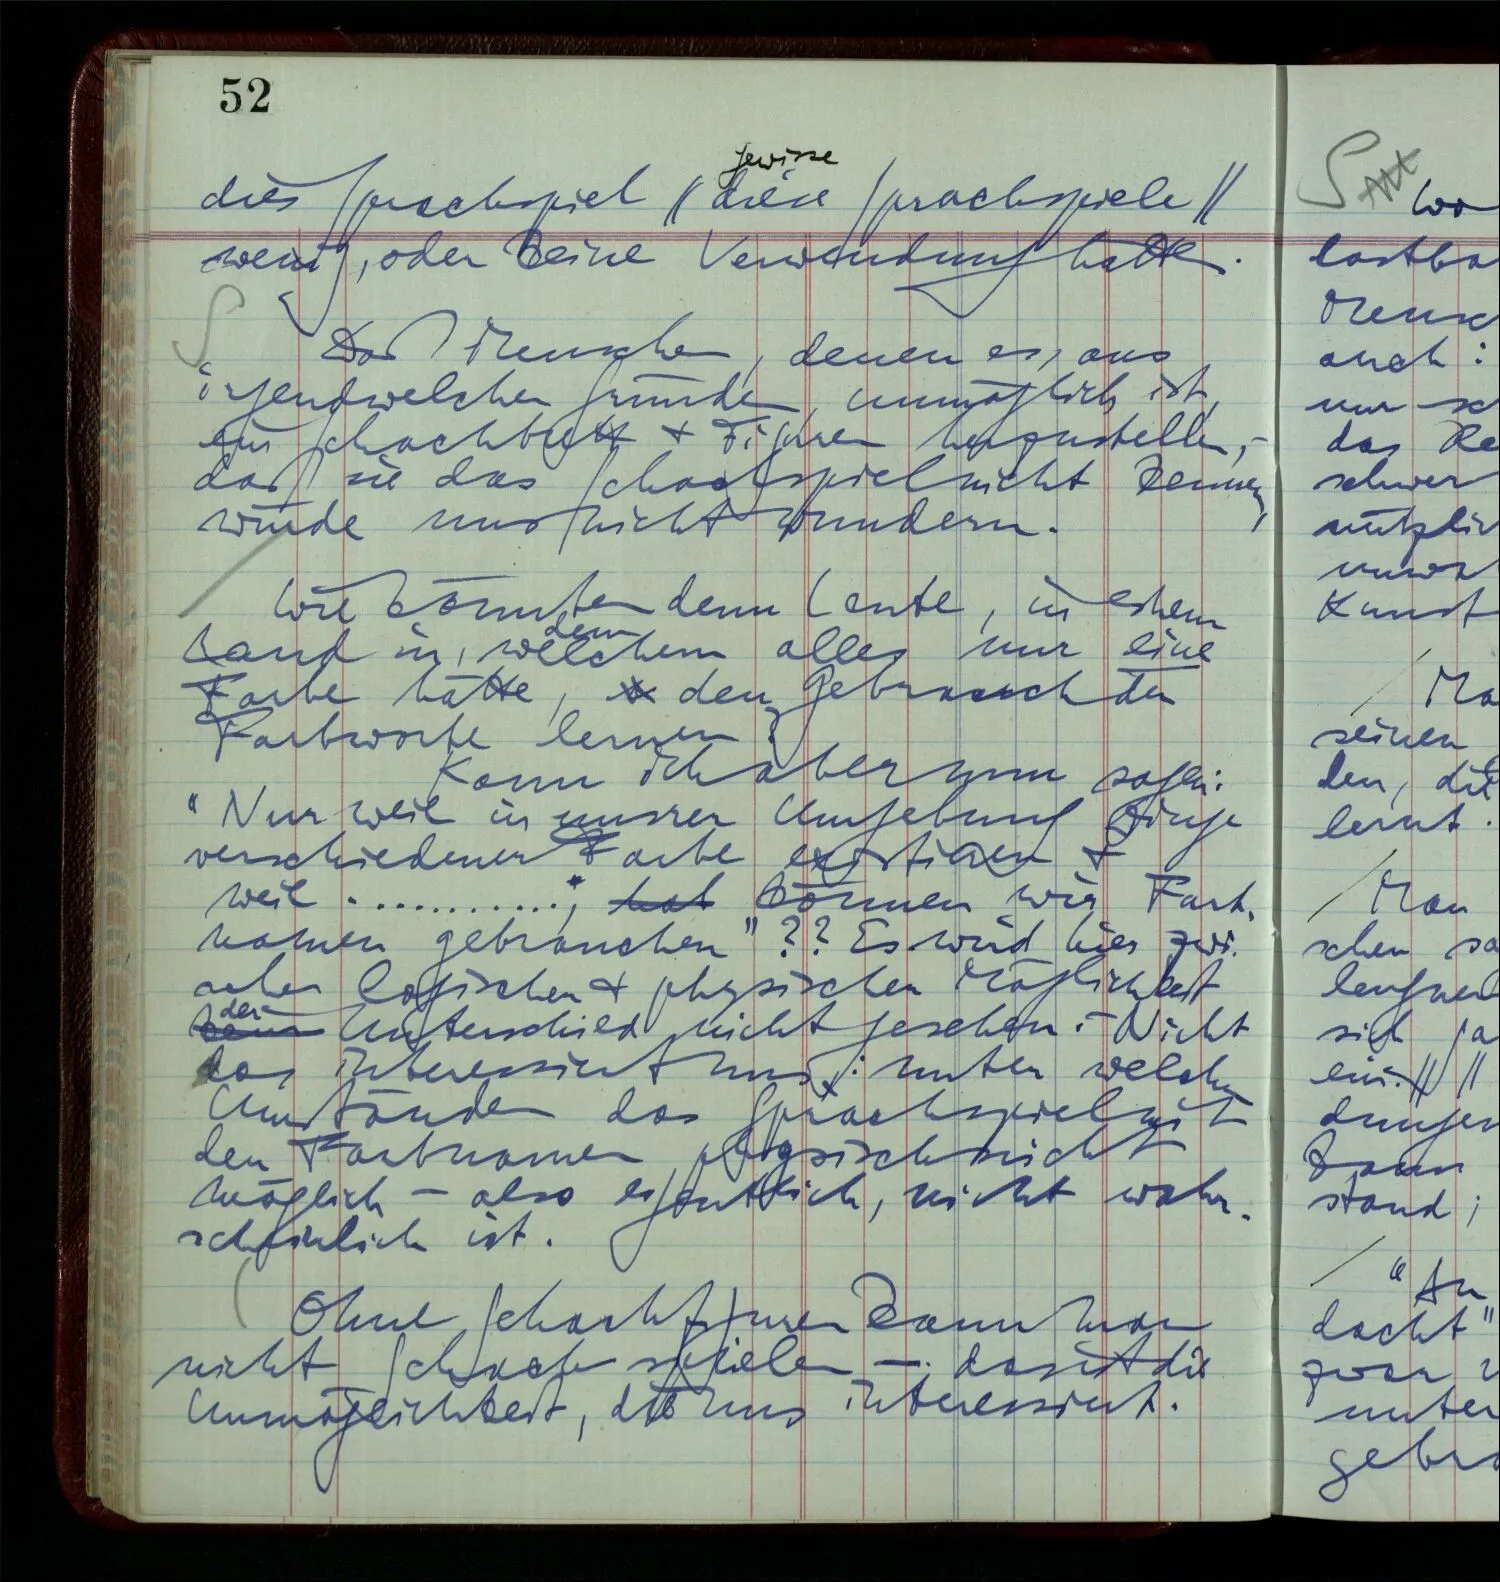 52
gewisse
dies Sprachspiel // diese Sprachspiele //
wenig, oder keine Verwendung hätte.
Daß Menschen, denen es, aus
irgendwelchen Gründen, unmöglich ist,
ein Schachbrett + Figuren herzustellen, –
daß sie das Schachspiel nicht kennen,
würde uns nicht wundern.
Wie könnten denn Leute, in einem
dem
Land in, welchem alles nur eine
Farbe hätte, den Gebrauch der
Farbworte lernen?
Kann ich aber nun sagen:
"Nur weil in unsrer Umgebung Dinge
verschiedener Farbe existieren +
weil ............, hat können wir Farb-
namen gebrauchen"?? Es wird hier zwi-
schen logischer + physischer Möglichkeit
der
kein Unterschied nicht gesehen. – Nicht
das interessiert uns: unter welchen
Umständen das Sprachspiel mit
den Farbnamen physisch nicht
möglich – also eigentlich, nicht wahr-
scheinlich ist.
Ohne Schachfiguren kann man
nicht Schach spielen –: das ist die
Unmöglichkeit, die uns interessiert.
S
lastba
Mensc
auch:
nur sc
das Re
schwer
nützlic
unwa
Kunst
Ma
seinen
den, die
lernt.
Man
schen sa
leugnen
sich ja
ein. // //
dungen
kann
stand;
"An
dacht"
zwar
unter
gebra